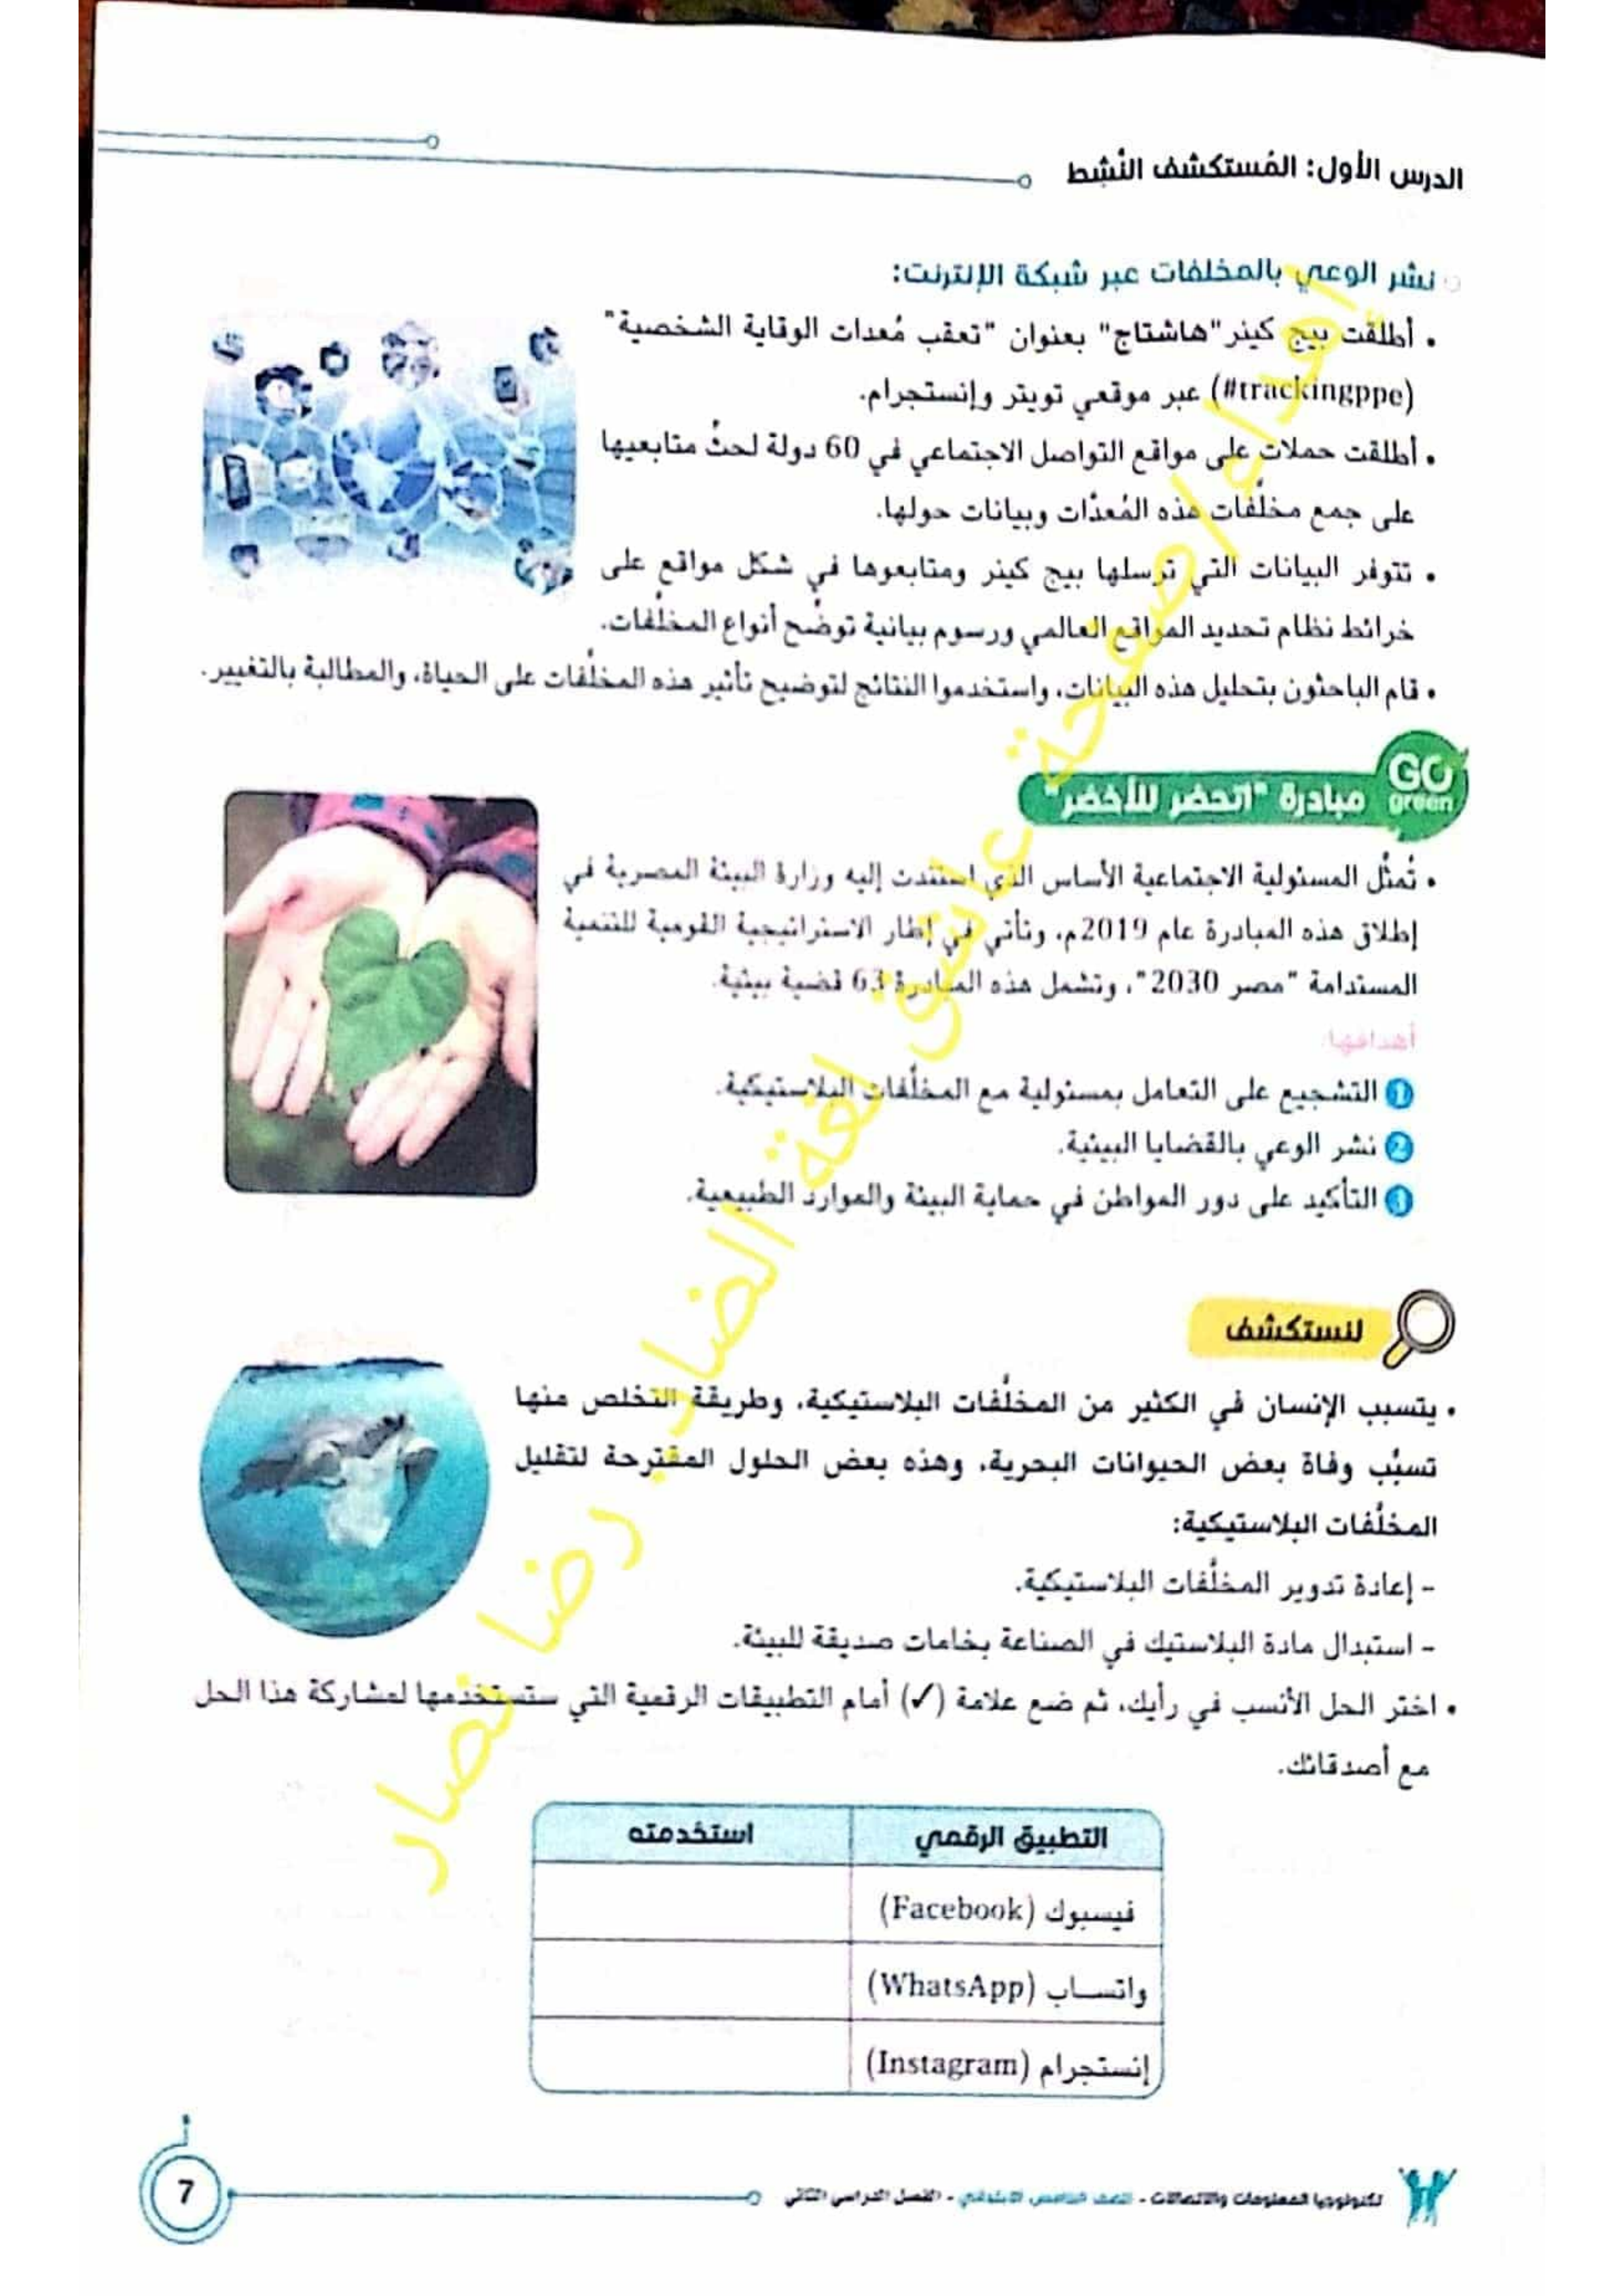 الدرس الأول: المُستكشف النَّشِط
نشر الوعي بالمخلفات عبر شبكة الإنترنت:
• أطلقت بيج كينر "هاشتاج" بعنوان "تعقب مُعدات الوقاية الشخصية"
(#trackingppe) عبر موقعي تويتر وإنستجرام.
• أطلقت حملات على مواقع التواصل الاجتماعي في 60 دولة لحثِّ متابعيها
على جمع مخلَّفات هذه المُعدَّات وبيانات حولها.
• تتوفر البيانات التي ترسلها بيج كينر ومتابعوها في شكل مواقع على
خرائط نظام تحديد المواقع العالمي ورسوم بيانية توضِّح أنواع المخلَّفات.
• قام الباحثون بتحليل هذه البيانات، واستخدموا النتائج لتوضيح تأثير هذه المخلَّفات على الحياة، والمطالبة بالتغيير.
GO
green
مبادرة "اتحضر للأخضر"
• تُمثِّل المسئولية الاجتماعية الأساس الذي استندت إليه وزارة البيئة المصرية في
إطلاق هذه المبادرة عام 2019م، وتأتي في إطار الاستراتيجية القومية للتنمية
المستدامة "مصر 2030"، وتشمل هذه المبادرة 63 قضية بيئية.
أهدافها:
1 التشجيع على التعامل بمسئولية مع المخلَّفات البلاستيكية.
2 نشر الوعي بالقضايا البيئية.
3 التأكيد على دور المواطن في حماية البيئة والموارد الطبيعية.
لنستكشف
• يتسبب الإنسان في الكثير من المخلَّفات البلاستيكية، وطريقة التخلص منها
تسبِّب وفاة بعض الحيوانات البحرية، وهذه بعض الحلول المقترحة لتقليل
المخلَّفات البلاستيكية:
- إعادة تدوير المخلَّفات البلاستيكية.
- استبدال مادة البلاستيك في الصناعة بخامات صديقة للبيئة.
• اختر الحل الأنسب في رأيك، ثم ضع علامة (✓) أمام التطبيقات الرقمية التي ستستخدمها لمشاركة هذا الحل
مع أصدقائك.
التطبيق الرقمي استخدمته
فيسبوك (Facebook)
واتساب (WhatsApp)
إنستجرام (Instagram)
تكنولوجيا المعلومات والاتصالات - الصف الخامس الابتدائي - الفصل الدراسي الثاني
7
إهداء صفحة عاشق لغة الضاد رضا نصار